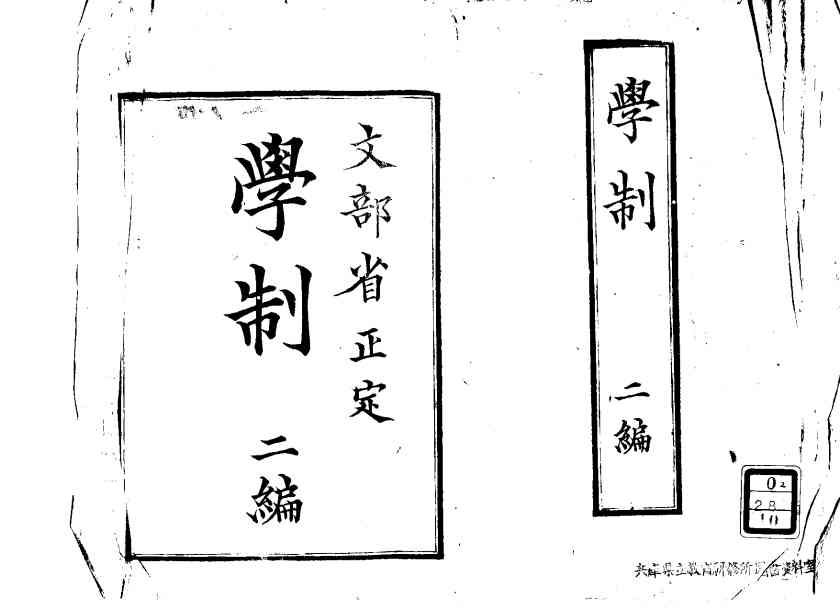 學制 二編
文部省正定
學制 二編
02
28
10
兵庫県立教育研修所図書資料室